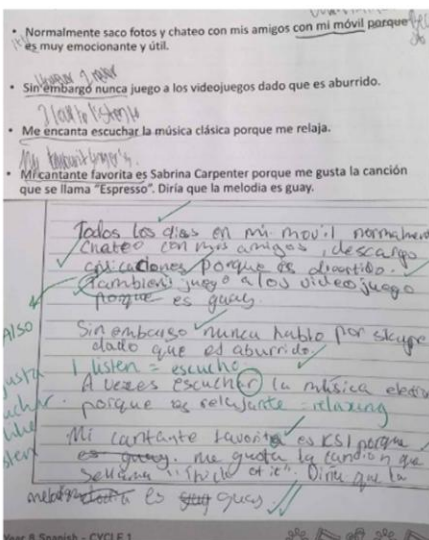 • Normalmente saco fotos y chateo con mis amigos con mi móvil porque
es muy emocionante y útil.
However I never
• Sin embargo nunca juego a los videojuegos dado que es aburrido.
I love to listen to
• Me encanta escuchar la música clásica porque me relaja.
My favourite singer is.
• Mi cantante favorita es Sabrina Carpenter porque me gusta la canción
que se llama "Espresso". Diría que la melodia es guay.
Todos los dias en mi movil normalmen
chateo con mis amigos, descargo
aplicaciones porque es divertido.
Tambien juego a los videojuego
porque es guay.
Also
Sin embargo nunca hablo por skype
dado que es aburrido.
I listen = escucho
A vezes escuchar la música elect
porque es relajante = relaxing
Mi cantante favorito es KSI porque
es guay. me gusta la cancion que
se llama "thick of it". Diria que la
es guay.
Year 8 Spanish - CYCLE 1